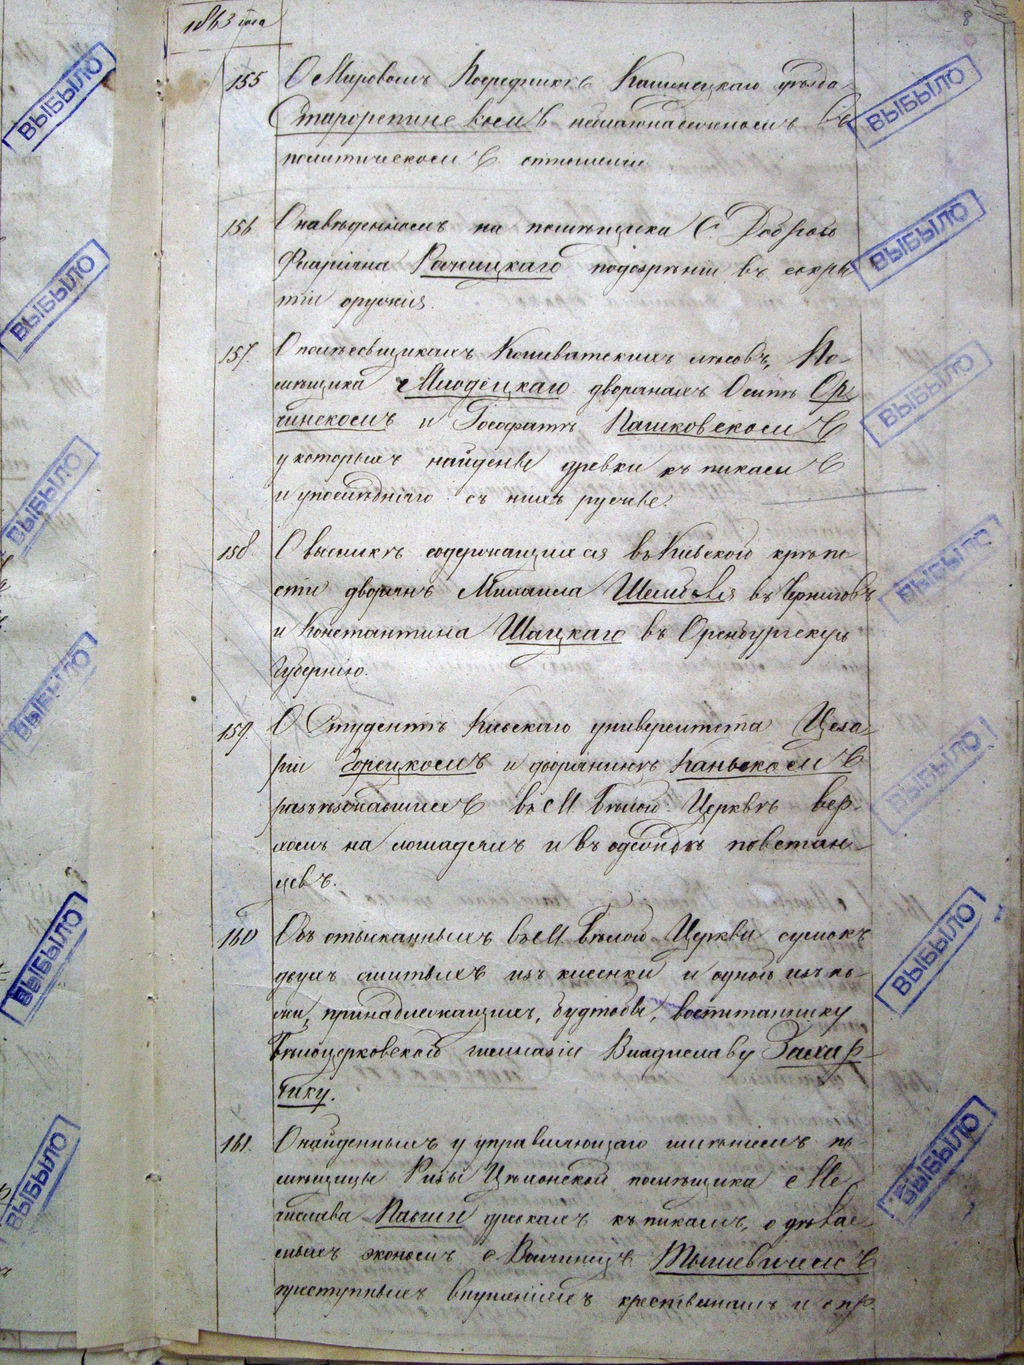 1863 года
8
155 О Мировомъ Посредникѣ Каменецкаго уѣзда
Старорепинѣ въ неблагонадежномъ въ
политическомъ отношении
156 О наведенномъ на помѣщика С.
Раницкаго подозрѣнии въ сокры
тии оружия.
157. О полѣсовщикахъ лѣсовъ, По-
мѣщика Млодецкаго дворянахъ Осипѣ Ор
чинскомъ и Іосафатѣ Пашковскомъ
у которыхъ найдены древки къ пикамъ
и у послѣдняго съ нихъ ружье.
158. О высылкѣ содержащихся въ Кіевской крѣпо
сти дворянъ Михаила въ Черниговъ
и Константина Шацкаго въ Оренбургскую
Губернію.
159 О Студентѣ Кіевскаго университета Цеза-
ри Горецкомъ и дворянинѣ Каньскомъ
разъѣзжавшихъ въ М. Бѣлой Церквѣ вер-
хомъ на лошадяхъ и въ одеждѣ повстан-
цевъ.
160 Объ отысканныхъ въ М. Бѣлой Церкви сумокъ
двухъ сшитыхъ изъ кисенки и одной изъ ко-
жи, принадлежащихъ, будтобы, воспитаннику
Бѣлоцерковской гимназіи Владиславу Захар-
чику.
161. О найденныхъ у управляющаго имѣніемъ по
мѣщицы Розы помѣщика Ме
числава древкахъ къ пикамъ, о дѣлае-
мыхъ экономъ с. Волчинецъ Тышевичемъ
преступныхъ внушеніяхъ крестьянамъ и о пр
ВЫБЫЛО
ВЫБЫЛО
ВЫБЫЛО
ВЫБЫЛО
ВЫБЫЛО
ВЫБЫЛО
ВЫБЫЛО
ВЫБЫЛО
ВЫБЫЛО
ВЫБЫЛО
ВЫБЫЛО
ВЫБЫЛО
ВЫБЫЛО